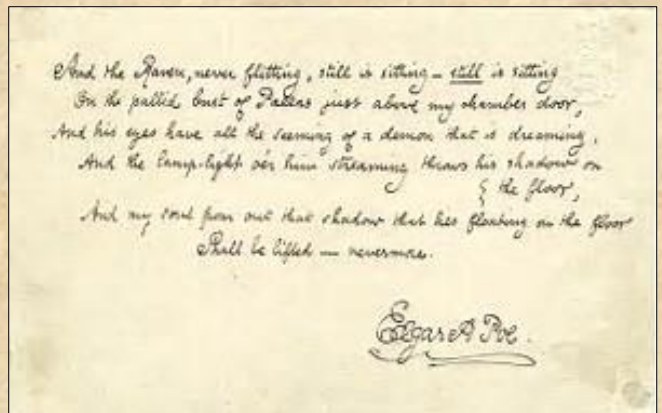 And the Raven, never flitting, still is sitting – still is sitting
On the pallid bust of Pallas just above my chamber door,
And his eyes have all the seeming of a demon that is dreaming,
And the lamp-light o'er him streaming throws his shadow on
the floor,
And my soul from out that shadow that lies floating on the floor
Shall be lifted — nevermore.
Edgar A Poe.